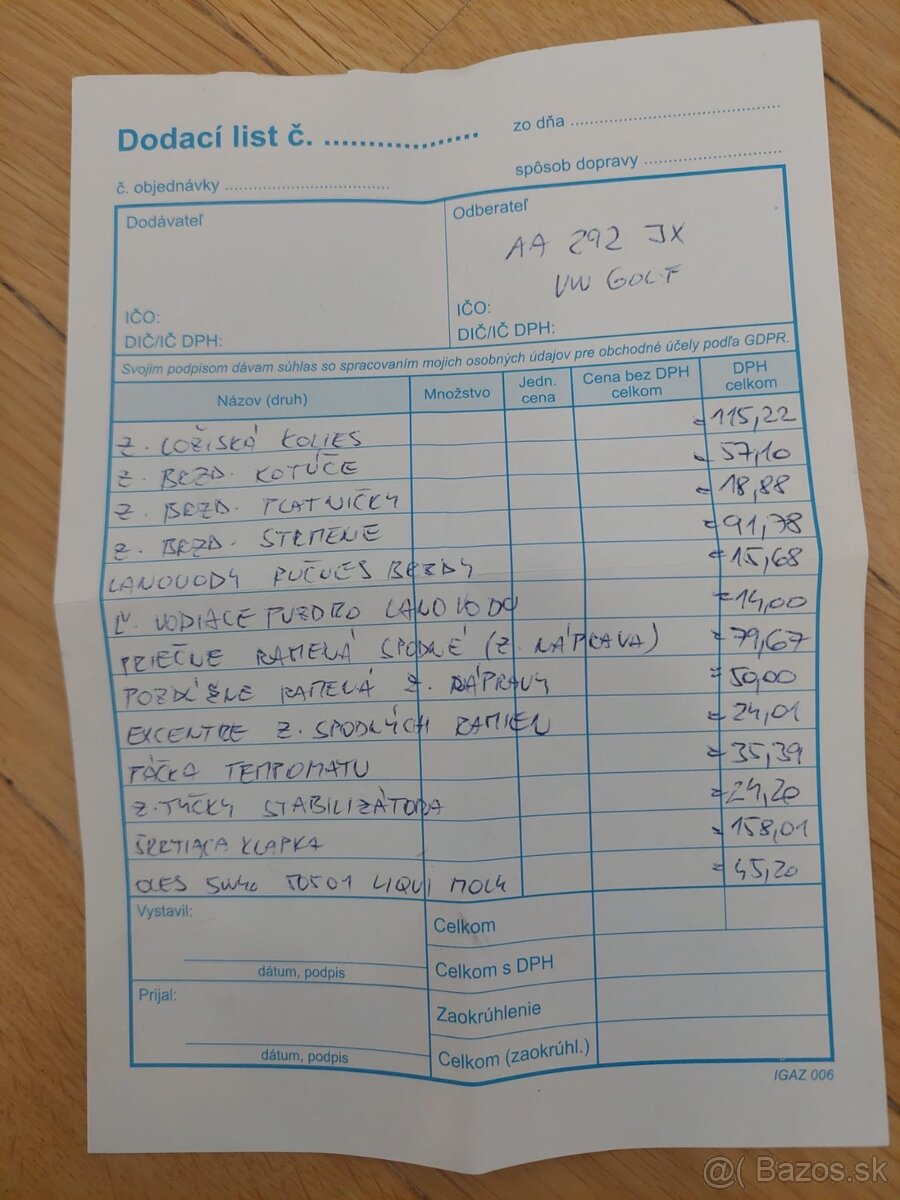 Dodací list č. ....................
zo dňa ....................
č. objednávky ....................
spôsob dopravy ....................
Dodávateľ
Odberateľ
AA 292 JX
VW GOLF
IČO:
DIČ/IČ DPH:
IČO:
DIČ/IČ DPH:
Svojim podpisom dávam súhlas so spracovaním mojich osobných údajov pre obchodné účely podľa GDPR.
Názov (druh) Množstvo Jedn. cena Cena bez DPH celkom DPH celkom
Z. LOŽISKÁ KOLIES = 115,22
Z. BRZD. KOTÚČE = 57,10
Z. BRZD. PLATNIČKY = 18,88
Z. BRZD. STRMENE = 91,78
LANOVODY RUČNEJ BRZDY = 15,68
Ľ. VODIACE PUZDRO LANOVODU = 14,00
PRIEČNE RAMENÁ SPODNÉ (Z. NÁPRAVA) = 79,67
POZDĹŽNE RAMENÁ Z. NÁPRAVY = 50,00
EXCENTRE Z. SPODNÝCH RAMIEN = 24,01
PÁČKA TEMPOMATU = 35,39
Z. TYČKY STABILIZÁTORA = 24,20
ŠKRTIACA KLAPKA = 158,01
OLEJ 5W40 50501 LIQUI MOLY = 45,20
Vystavil:
dátum, podpis
Prijal:
dátum, podpis
Celkom
Celkom s DPH
Zaokrúhlenie
Celkom (zaokrúhl.)
IGAZ 006
@( Bazos.sk